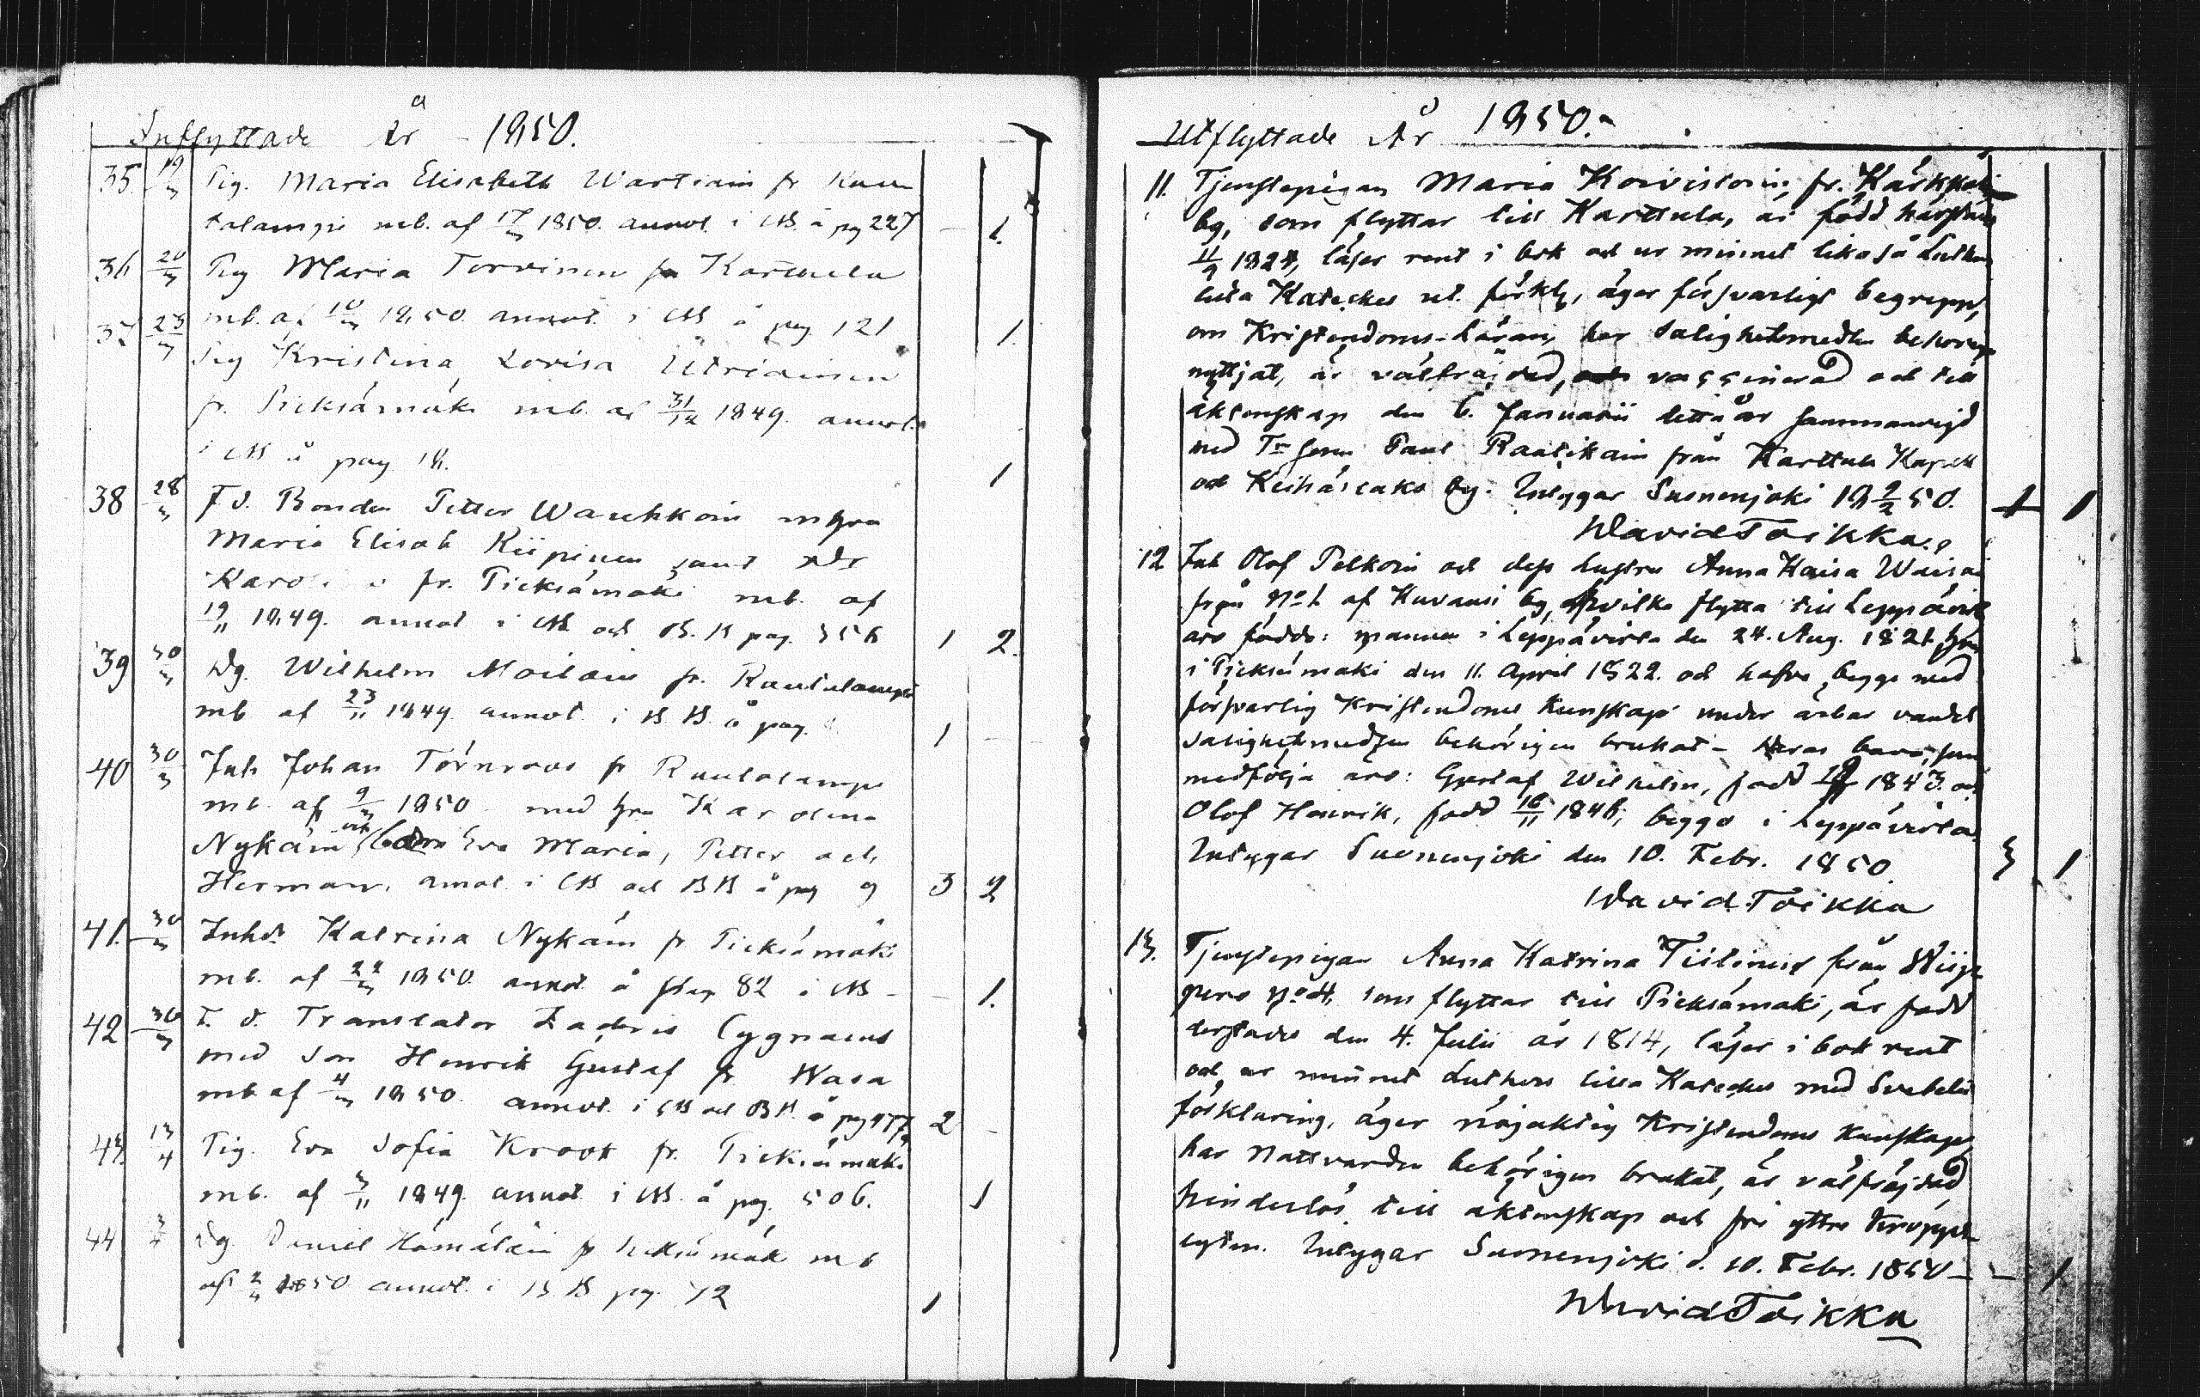 Inflyttade År 1850.
35 19/3 Pig. Maria Elisabeth Wartiain fr Rau
talampi mb. af 17/3 1850. annot. i CB. å pag 227 - 1.
36 20/3 Pig Maria Torvinen fr Karttula
mb. af 10/3 1850. annot. i CB å pag 121 1.
37 23/3 Pig Kristina Lovisa Utriainen
fr. Pieksämäki mb. af 31/12 1849. annot.
i CB å pag 18. 1
38 28/3 F.d. Bonden Petter Wauhkoin m hu
Maria Elisab Riipinen samt
fr. Pieksämäki mb. af
19/11 1849. annot i CB. och B.B pag. 356 1 2.
39 30/3 Dg. Wilhelm Moilain fr. Rautalampi
mb af 23/11 1849. annot. i B.B. å pag. 1 -
40 30/3 Inh Johan Törnroos fr Rautalampi
mb. af 9/3 1850 med hu Karolina
Nykäin och barn Eva Maria, Petter och
Herman. annot. i CB och BB å pag 9 3 2
41. 30/3 Inhs. Katrina Nykäin fr Pieksämäki
mb. af 22/3 1850. annot. å pag 82 i CB - - 1.
42 30/3 F.d. Translator Zachris Cygnaeus
med son Henrik Gustaf fr Wasa
mb af 4/3 1850. annot. i CB och BB. å pag 477 2 -
43. 13/4 Pig. Eva Sofia Krook fr. Pieksämäki
mb. af 3/11 1849. annot. i CB. å pag. 506. 1
44 3/4 Dg. Daniel Hämäläin fr Pieksämäk mb
af 2/4 1850 annot. i BB pag. 72 1
Utflyttade År 1850.
11. Tjenstepigan Maria Koivistoin, fr.
by, som flyttar till Karttula, är född härstädes
11/9 1824, läser rent i bok och ur minnet likaså Luthers
lilla Kateches ut. förklg, äger försvarligt begrepp
om Kristendoms-Läran, har Salighetsmedlen behörigen
nyttjat, är välfräjdad, vaccinerad och till
äktenskap den 6. Januarii detta år sammanvigd
med Tr Sonen Paul Raatikain från Karttula Kapell
och by. Intygar Suonenjoki 18 9/2 50. 1 1
David Toikka.
12 Inh Olof Pelkoin och dess hustru Anna Kaisa Waisai
från No 1. af Kuvansi by, hvilka flytta till Leppävirta
äro födde: mannen i Leppävirta den 24. Aug. 1821, hon
i Pieksämäki den 11. April 1822. och hafva begge med
försvarlig Kristendoms Kunskap under ärbar vandel
Salighetsmedlen behörigen brukat - Deras barn, som
medfölja äro: Gustaf Wilhelm, född 1843. och
Olof Henrik, född 16/11 1846; begge i Leppävirta.
Intygar Suonenjoki den 10. Febr. 1850. 3 1
David Toikka
13. Tjenstepigan Anna Katrina Tiilinen från Wiip
pero No 4, som flyttar till Pieksämäki, är född
derstädes den 4. Julii år 1814, läser i bok rent
och ur minnet Luthers lilla Kateches med Svebelii
förklaring, äger nöjaktig Kristendoms Kunskap
har Nattvarden behörigen brukat, är välfräjdad,
hinderlös till äktenskap och fri yttre kropps
lyten. Intygar Suonenjoki d. 10. Febr. 1850 - - 1
David Toikka